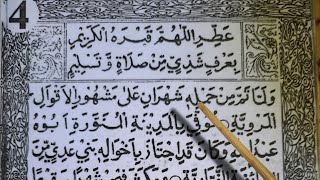 4
عَطِّرِ اللّٰهُمَّ قَبْرَهُ الْكَرِيْمَ
بِعَرْفٍ شَذِيٍّ مِنْ صَلَاةٍ وَّتَسْلِيْمٍ
وَلَمَّا تَمَّ مِنْ حَمْلِهِ شَهْرَانِ عَلٰى مَشْهُوْرِ الْاَقْوَالِ
الْمَرْوِيَّةِ تُوُفِّيَ بِالْمَدِيْنَةِ الْمُنَوَّرَةِ اَبُوْهُ
عَبْدُ اللّٰهِ وَكَانَ قَدِ اجْتَازَ بِاَخْوَالِهِ بَنِيْ عَدِيٍّ مِنَ